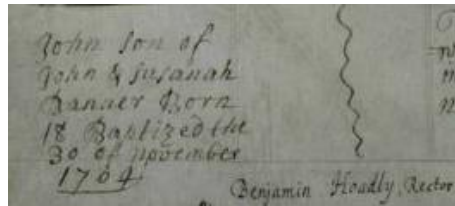 John son of
John & Susanah
Banger Born
18 Baptized the
30 of November
1704
Benjamin Hoadly, Rector